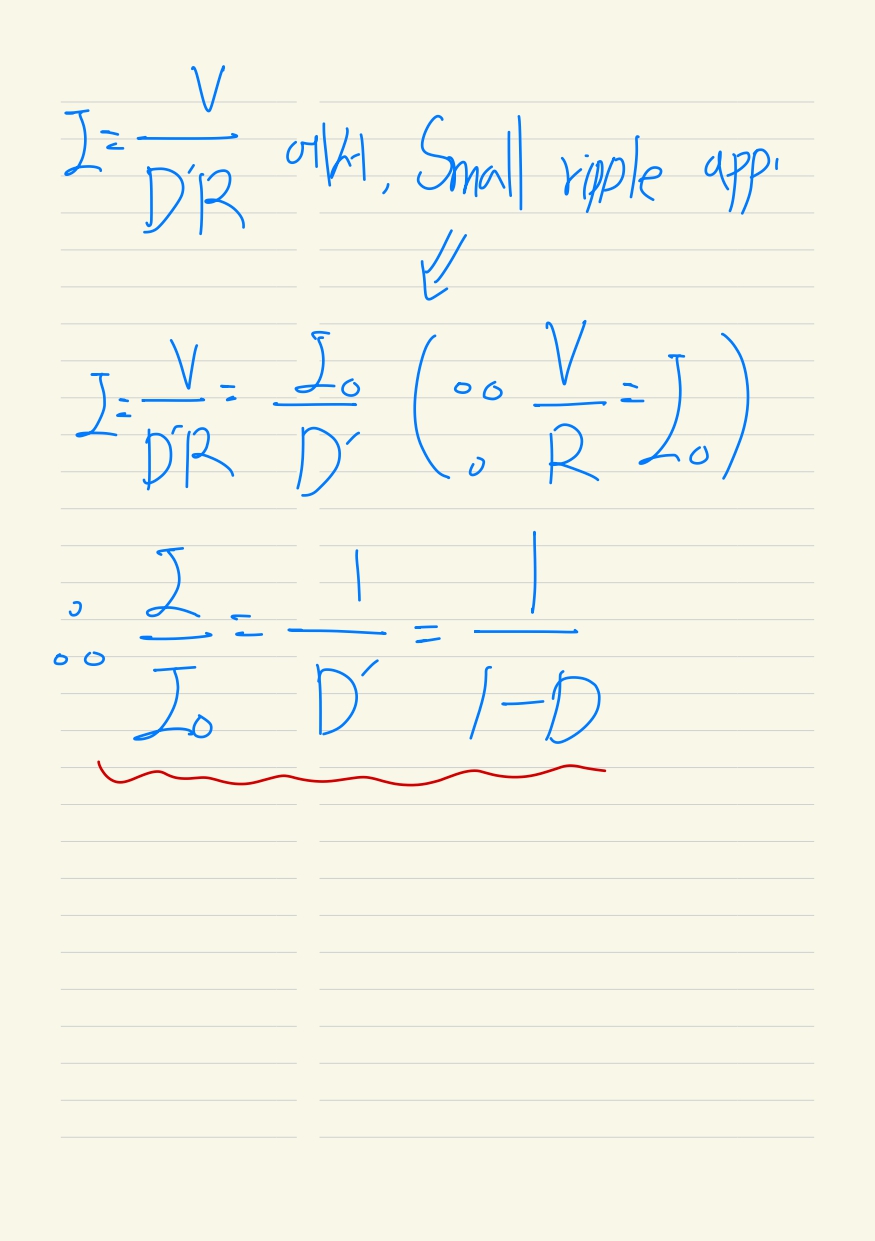 I = V / D'R 에서, Small ripple app.
⇙
I = V / D'R = I₀ / D' (∵ V / R = I₀)
∴ I / I₀ = 1 / D' = 1 / 1-D